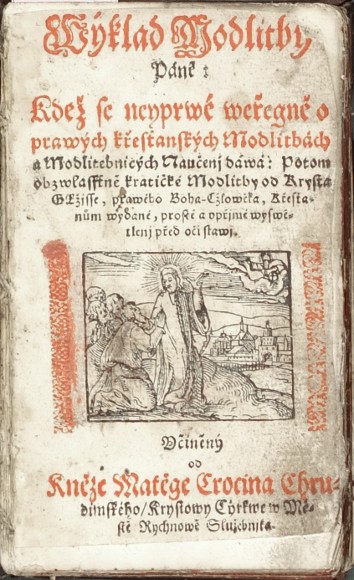 Wýklad Modlitby
Páně:
Kdež se neyprwé weřegně o
prawých křesťanských Modlitbách
a Modlitebnicých Naučenj dáwá: Potom
obzwlásstně kratičké Modlitby od Krysta
GEžisse, prawého Boha-Cžlowěka, Křesťa-
nům wydané, prosté a vpřjmé wyswě-
tlenj před oči stawj.
Včiněný
od
Kněze Matěge Crocina Chru-
dimského/ Krystowy Cýrkwe w Mě-
stě Rychnowě Služebnjka.